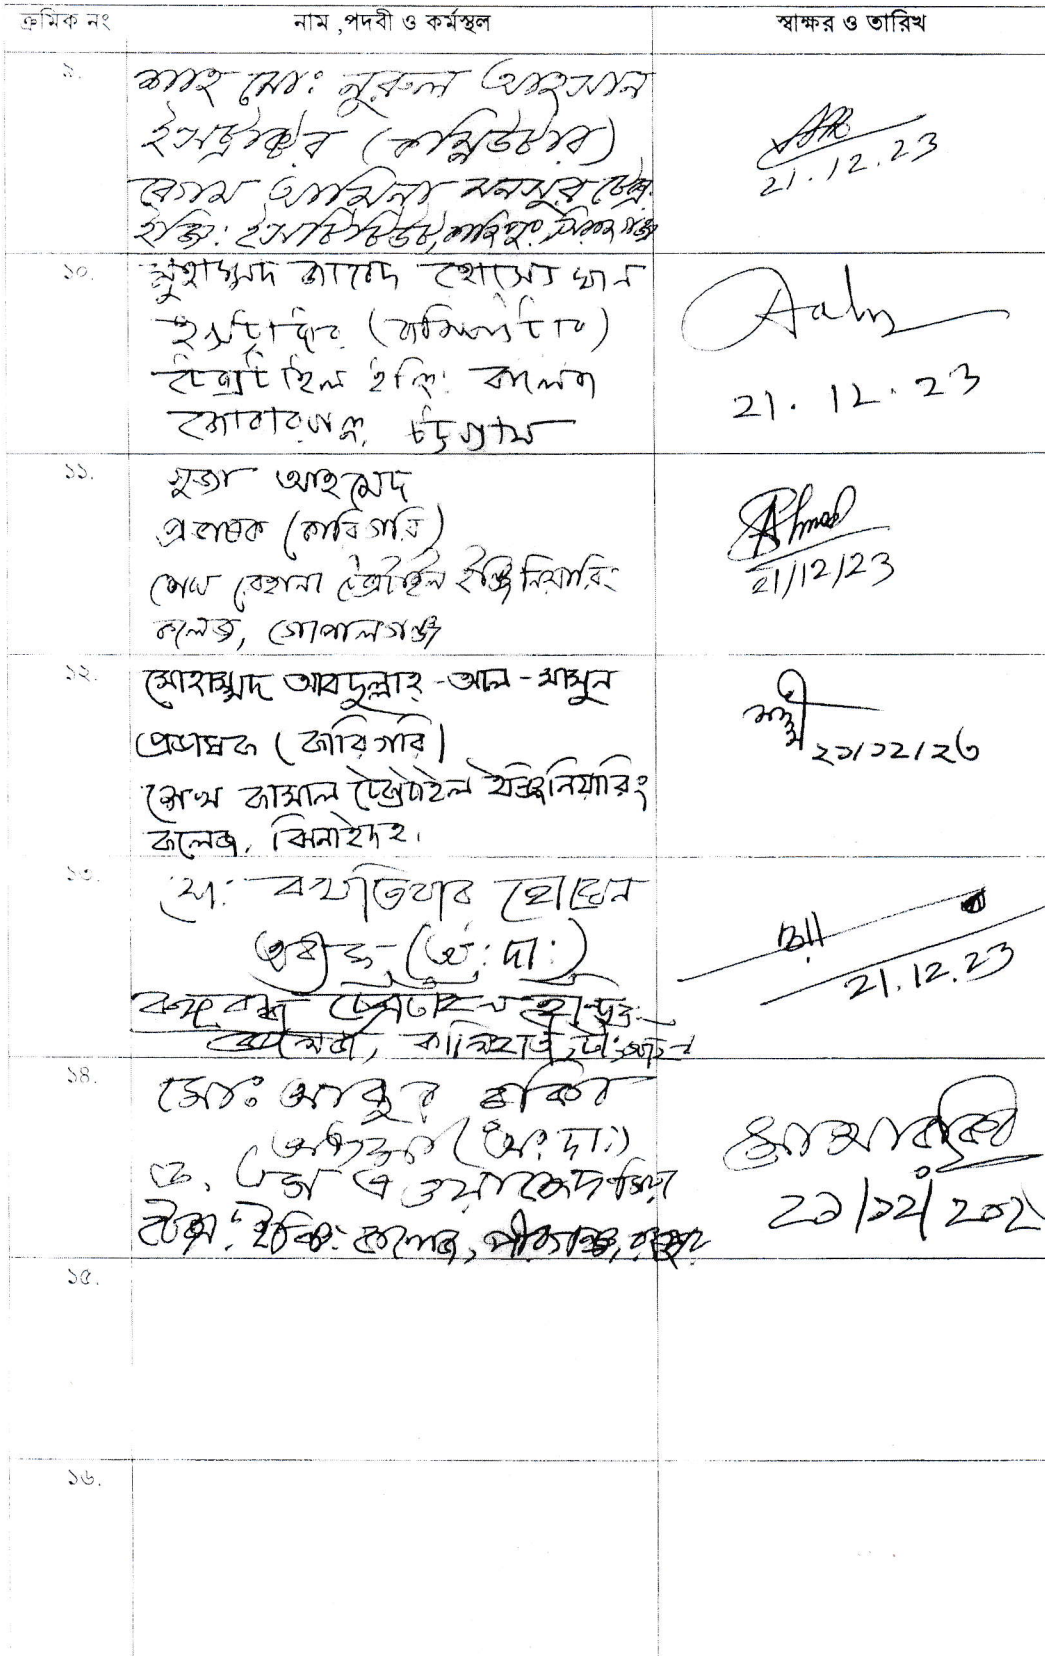 ক্রমিক নং নাম ,পদবী ও কর্মস্থল স্বাক্ষর ও তারিখ
৯.
শাহ মো: নুরুল আহসান
ইন্সট্রাক্টর (কম্পিউটার)
বেগম আমিনা মনসুর টেক্স:
ইঞ্জি: ইনস্টিটিউট,
21.12.23
১০.
মুহাম্মদ জাবেদ হোসেন খান
ইন্সট্রাক্টর
টেক্সটাইল ইঞ্জি: কলেজ
জোরারগঞ্জ, চট্টগ্রাম
21.12.23
১১.
সুজা আহমেদ
প্রভাষক (কারিগরি)
শেখ রেহানা টেক্সটাইল ইঞ্জিনিয়ারিং
কলেজ, গোপালগঞ্জ
Ahmed
21/12/23
১২.
মোহাম্মদ আবদুল্লাহ-আল-মামুন
প্রভাষক (কারিগরি)
শেখ কামাল টেক্সটাইল ইঞ্জিনিয়ারিং
কলেজ, ঝিনাইদহ।
২১/১২/২৩
১৩.
মো: বখতিয়ার হোসেন
অধ্যক্ষ (অ:দা:)
বঙ্গবন্ধু টেক্সটাইল ইঞ্জি:
কলেজ, কালিহাতি, টাংগাইল
BH
21.12.23
১৪.
মোঃ আব্দুর রকিব
অধ্যক্ষ (অ:দা:)
ড. এম এ ওয়াজেদ মিয়া
টেক্স: ইঞ্জি: কলেজ, পীরগঞ্জ, রংপুর
২১/১২/২০২
১৫.
১৬.